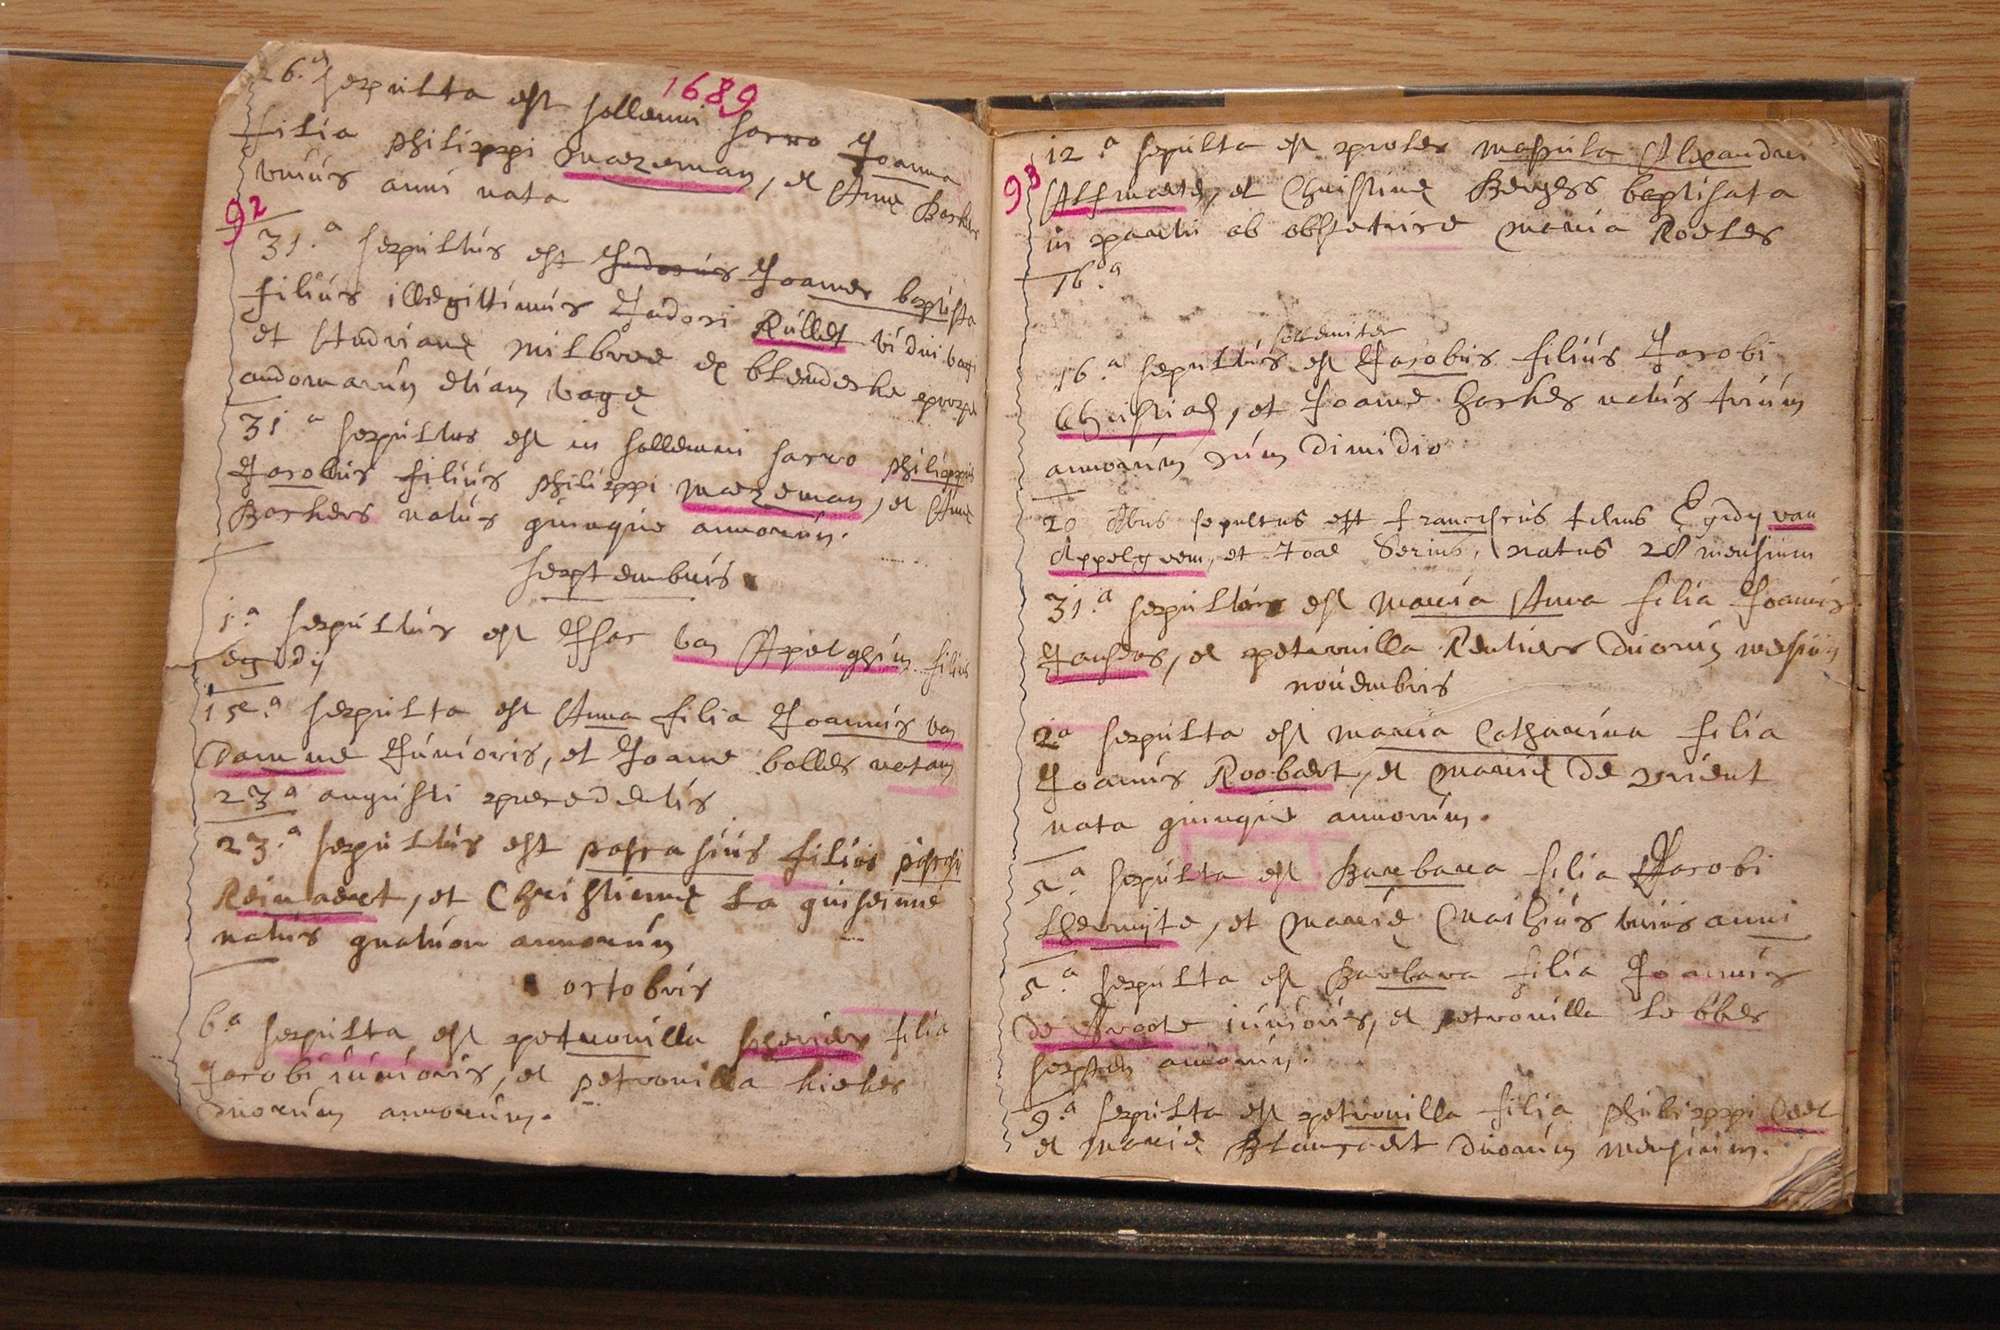 1689
26.a sepulta est sollemni sacro Joanna
filia philippi Mazeman, et Annę Backers
unius anni nata
92
31.a sepultus est Judocus Joannes baptista
filius illegittimus Judoci Rullet vidui vagi
et Adrianę Milbroe ex blendecke prope
audomarum etiam vagę
31a sepultus est in sollemni sacro philippus
Jacobus filius philippi Mazeman, et Annę
Backers natus quinque annorum.
septembris
1.a sepultus est Isac van Apelghem filius
egidij
15.a sepulta est Anna filia Joannis van
Damme Junioris, et Joannę bolles natam
23a augusti precedentis
23.a sepultus est pascasius filius pascasi
Reinaert, et Christiennę La quiseinne
natus quatuor annorum
octobris
6.a sepulta est petronilla scherier filia
Jacobi iunioris, et petronilla kiekes
duorum annorum.
93
12.a sepulta est proles mascula Alexandri
Alfmaete, et Christinę Bergers baptisata
in partu ab obstetrice Maria Roeles
16.a
sollemniter
16.a sepultus est Jacobus filius Jacobi
Christiaen, et Joannę Hackes natus trium
annorum cum dimidio
20 8bris sepultus est franciscus filius Egidij van
Appelgeem, et Joae Serius, natus 28 mensium
31.a sepulta est Maria Anna filia Joannis
Jansens, et petronilla Reuliers duorum mesium
novembris
2a sepulta est Maria Catharina filia
Joannis Roobaert, et Marię De vrient
nata quinque annorum.
5.a sepulta est Barbara filia Jacobi
Lhermijte, et Marię Mathius unius anni
5.a sepulta est Barbara filia Joannis
De Groote iunioris, et petronilla Lebbes
septem annorum.
9.a sepulta est petronilla filia philippi
et Marię Blancaert duorum mensium.